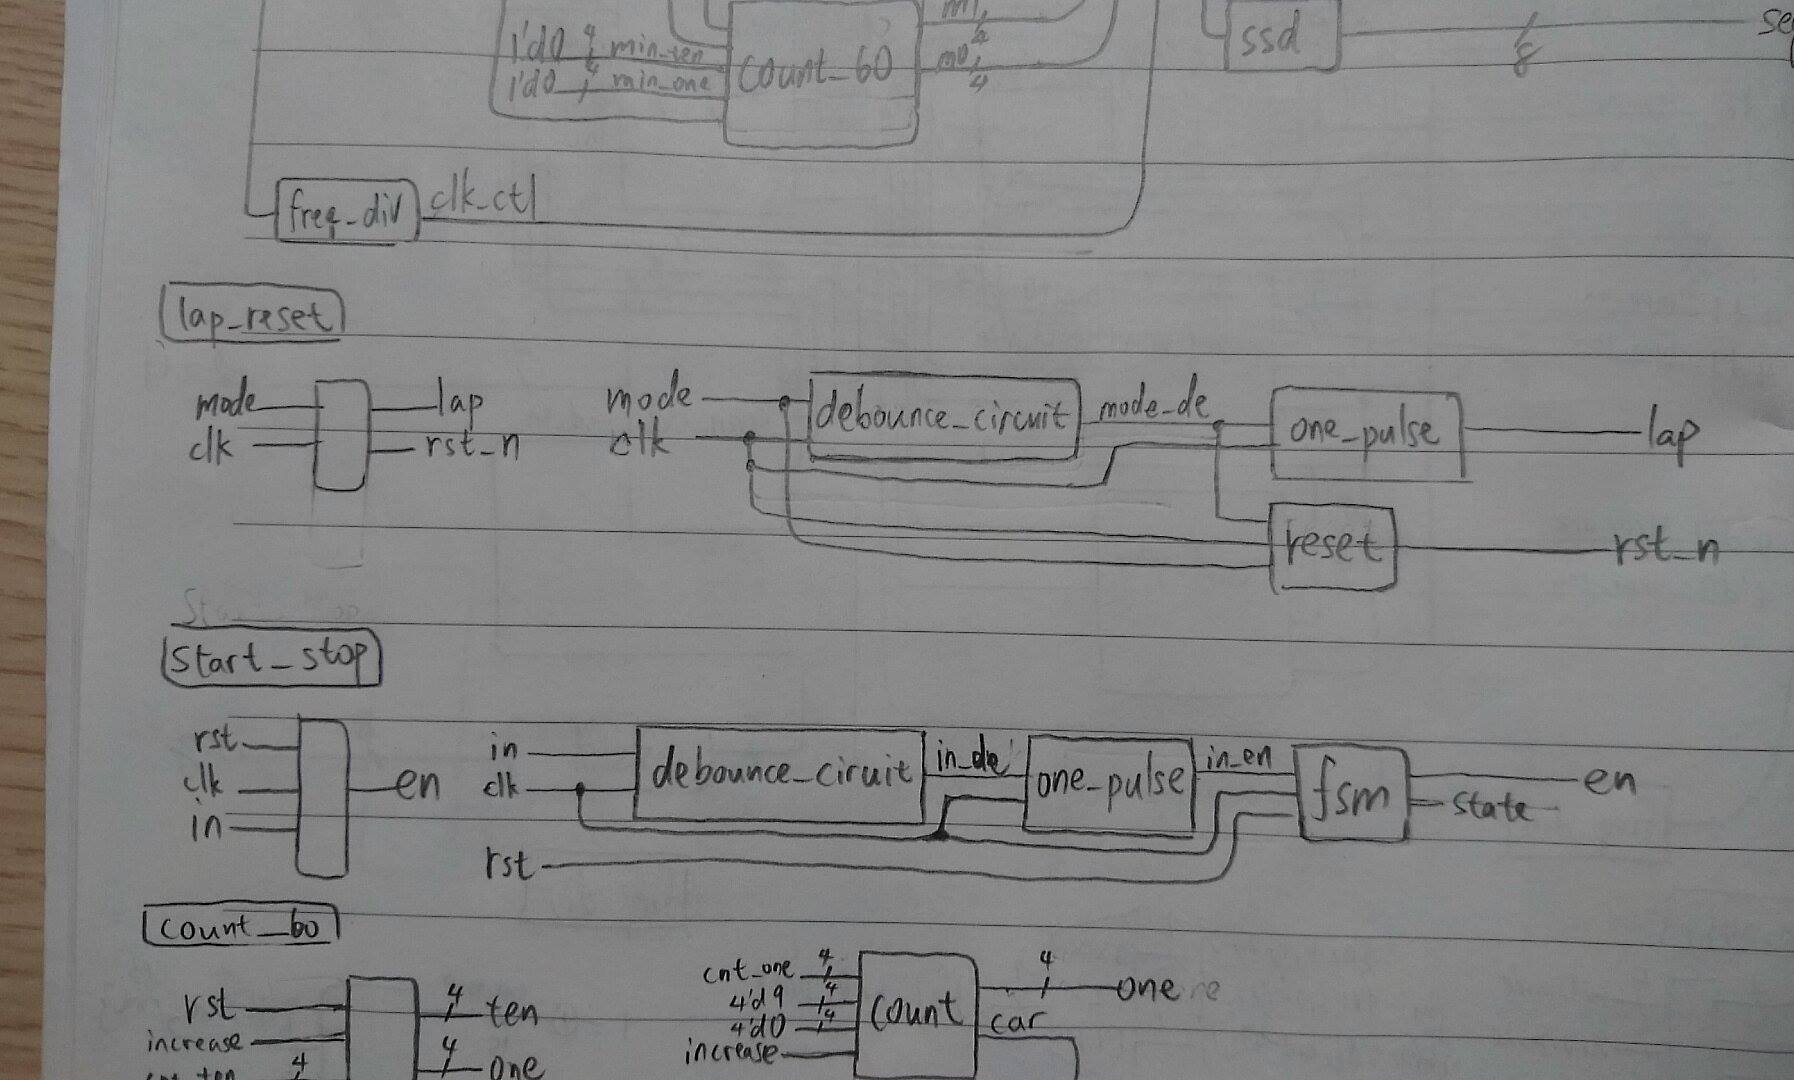 1'd0 4 min_ten
1'd0 4 min_one
count_60
m1 4
m0 4
ssd
8
se
freq_div
clk_ctl
lap_reset
mode
clk
lap
rst_n
mode
clk
debounce_circuit
mode_de
one_pulse
lap
reset
rst_n
start_stop
rst
clk
in
en
in
clk
rst
debounce_ciruit
in_de
one_pulse
in_en
fsm
en
state
count_60
rst
increase
cnt_ten 4
4 ten
4 one
cnt_one 4
4'd9 4
4'd0 4
increase
count
4 one
car